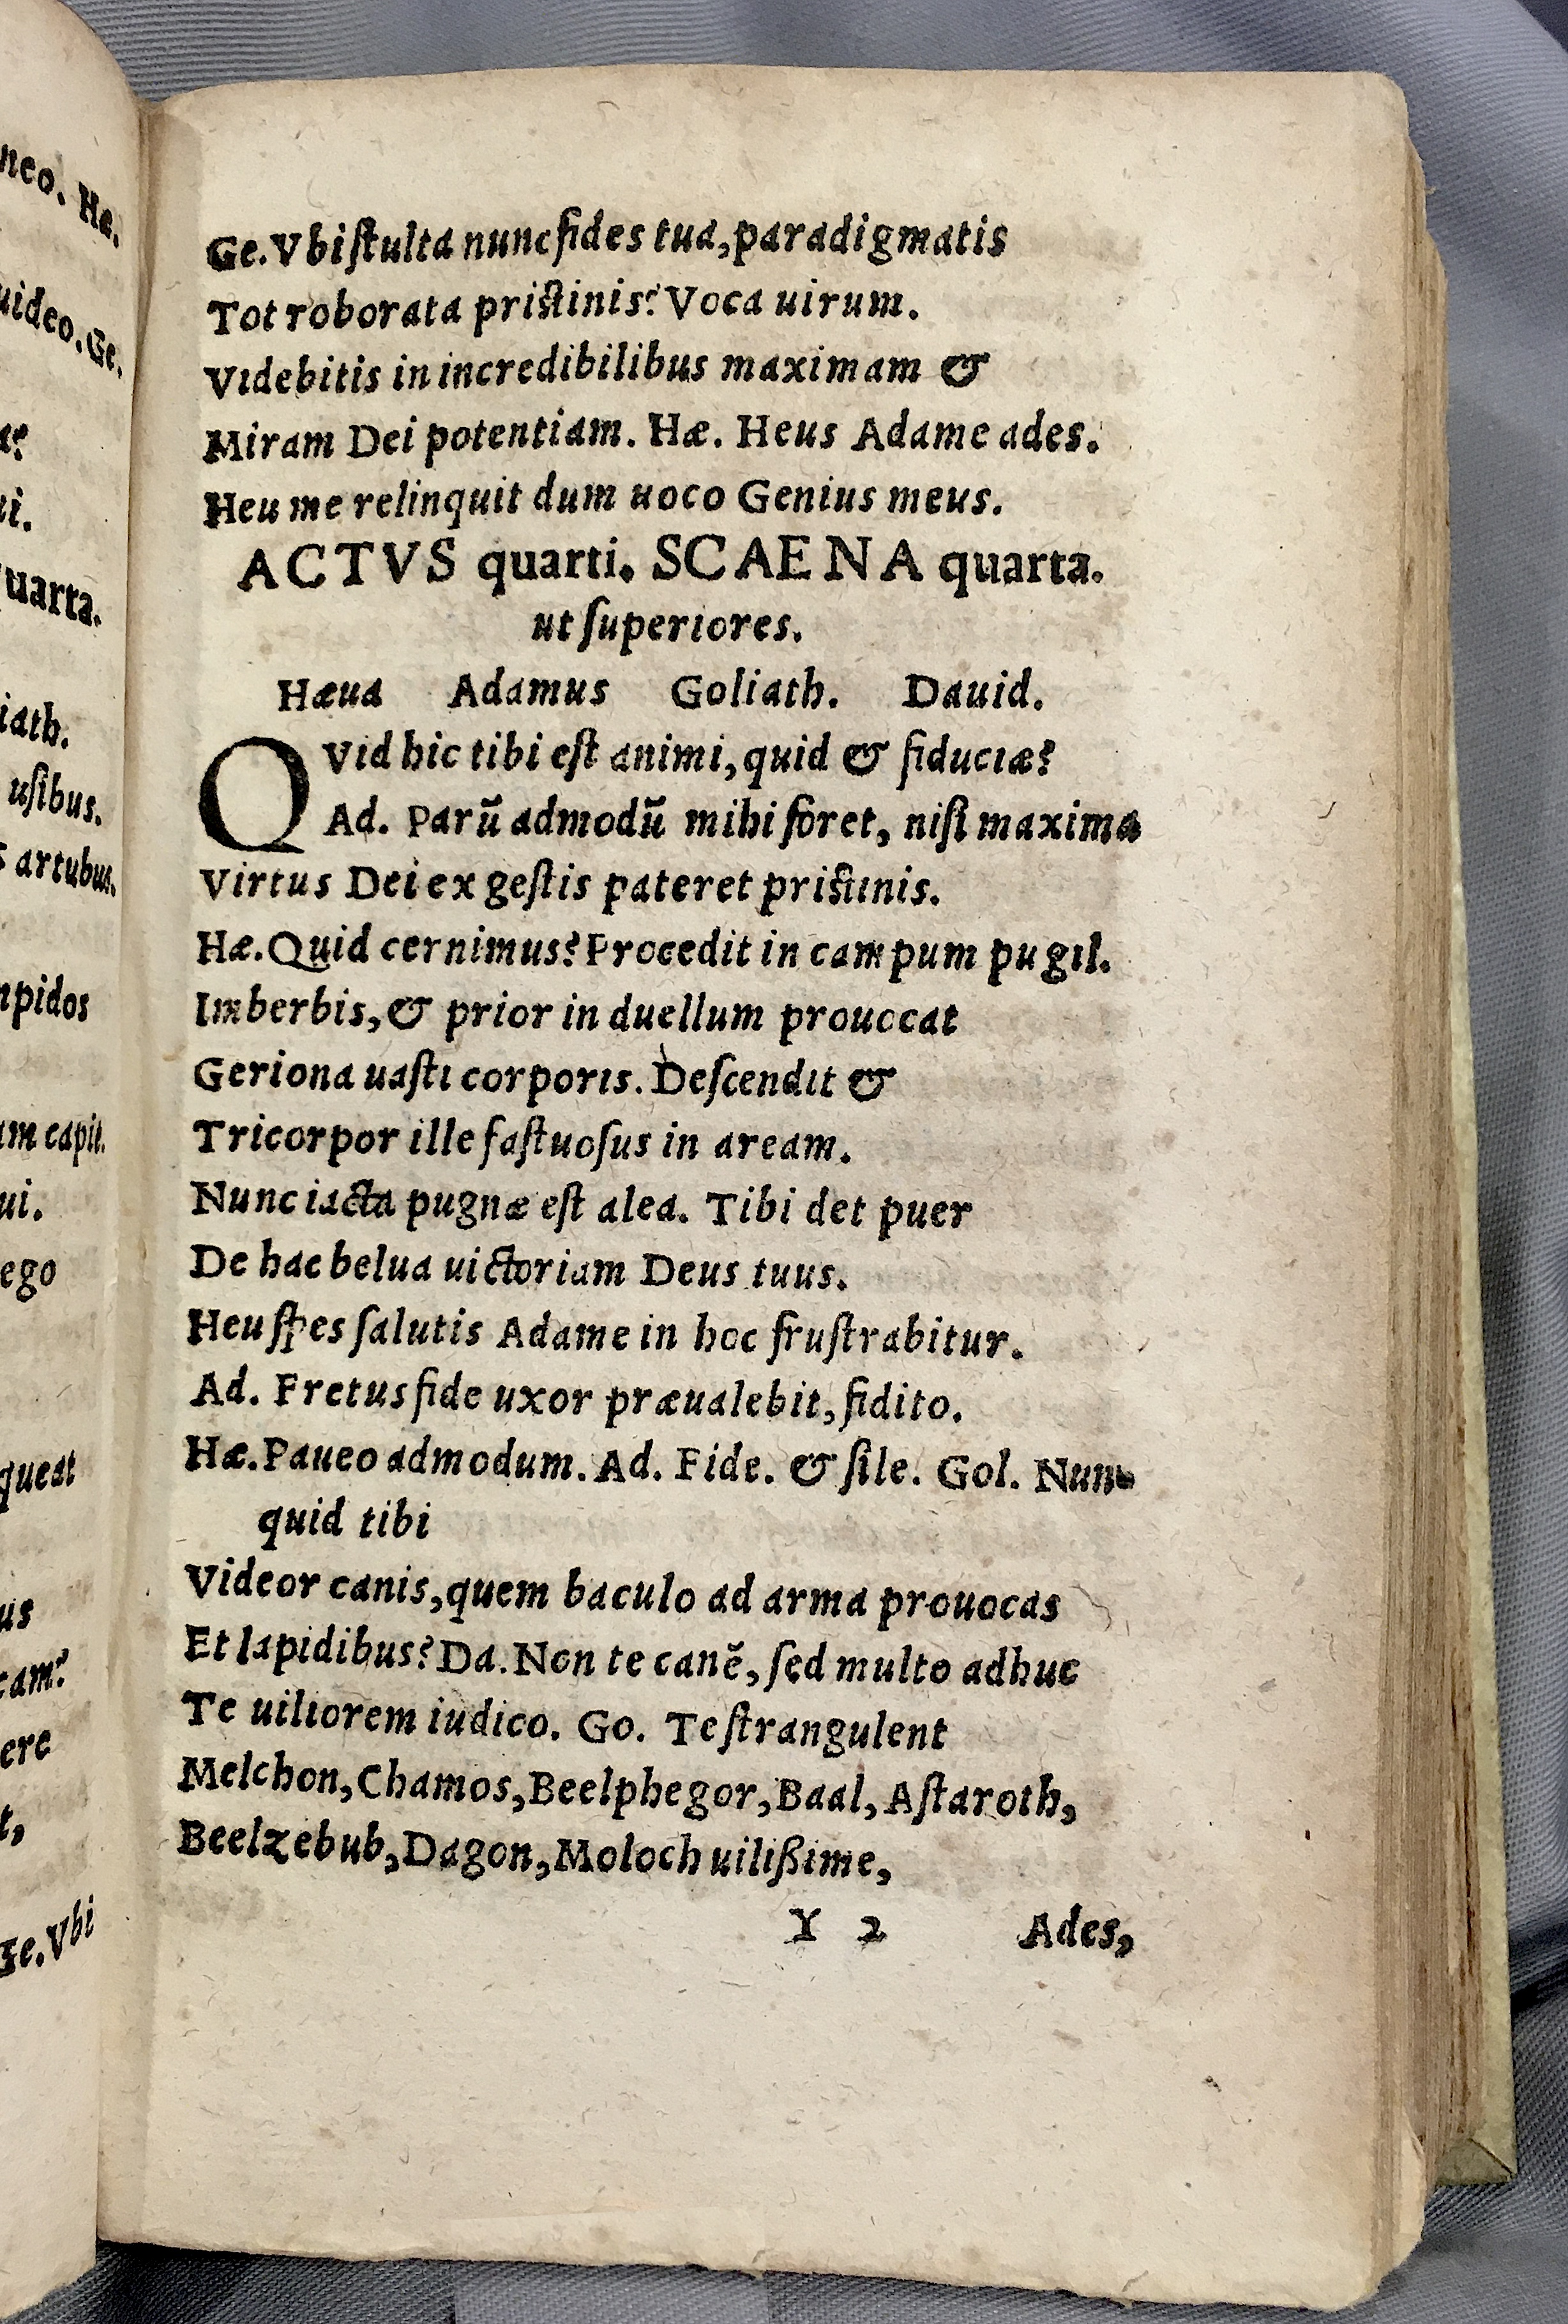 neo. Hæ.
uideo. Ge.
ui.
uarta.
iath.
usibus.
s artubus.
mpidos
am capit.
ui.
ego
queat
us
cam?
ere
t,
Ge. Vbi
Ge. Vbi ſtulta nunc fides tua, paradigmatis
Tot roborata priſtinis? Voca uirum.
Videbitis in incredibilibus maximam &
Miram Dei potentiam. Hæ. Heus Adame ades.
Heu me relinquit dum uoco Genius meus.
ACTVS quarti. SCAENA quarta.
ut ſuperiores.
Hæua Adamus Goliath. Dauid.
QVid hic tibi eſt animi, quid & fiduciæ?
Ad. Parũ admodũ mihi foret, niſi maxima
Virtus Dei ex geſtis pateret priſtinis.
Hæ. Quid cernimus? Procedit in campum pugil.
Imberbis, & prior in duellum prouocat
Geriona uaſti corporis. Deſcendit &
Tricorpor ille faſtuoſus in aream.
Nunc iacta pugnæ eſt alea. Tibi det puer
De hac belua uictoriam Deus tuus.
Heu ſpes ſalutis Adame in hoc fruſtrabitur.
Ad. Fretus fide uxor præualebit, fidito.
Hæ. Paueo admodum. Ad. Fide. & ſile. Gol. Nun-
quid tibi
Videor canis, quem baculo ad arma prouocas
Et lapidibus? Da. Non te canẽ, ſed multo adhuc
Te uiliorem iudico. Go. Te ſtrangulent
Melchon, Chamos, Beelphegor, Baal, Aſtaroth,
Beelzebub, Dagon, Moloch uilißime,
Y 2 Ades,